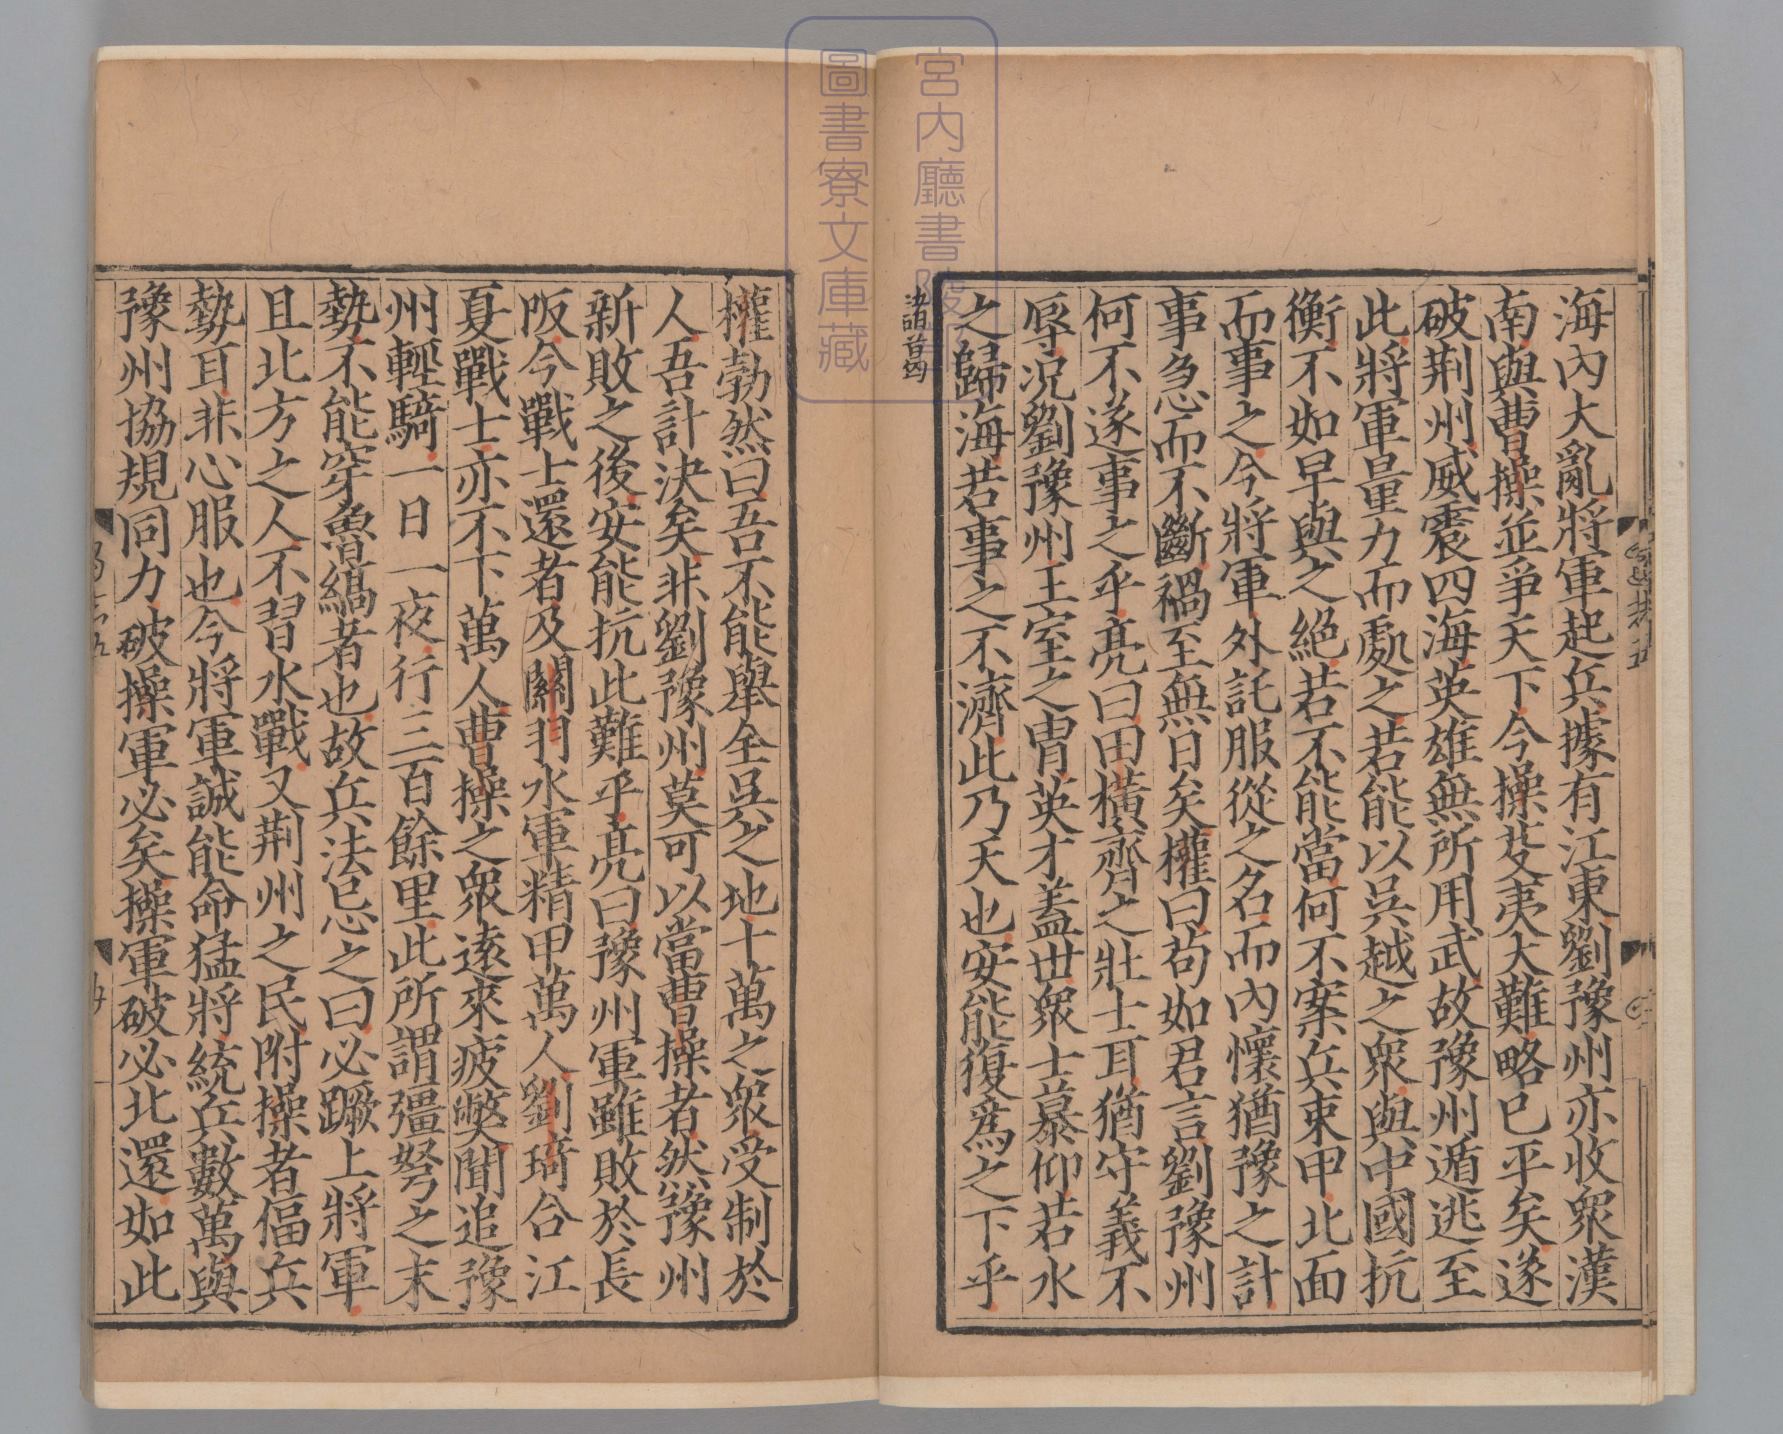 海內大亂將軍起兵據有江東劉豫州亦收衆漢
南與曹操並爭天下今操芟夷大難略已平矣遂
破荆州威震四海英雄無所用武故豫州遁逃至
此將軍量力而處之若能以吳越之衆與中國抗
衡不如早與之絶若不能當何不案兵束甲北面
而事之今將軍外託服從之名而內懷猶豫之計
事急而不斷禍至無日矣權曰苟如君言劉豫州
何不遂事之乎亮曰田橫齊之壯士耳猶守義不
辱況劉豫州王室之胄英才蓋世衆士慕仰若水
之歸海若事之不濟此乃天也安能復爲之下乎
諸葛
權勃然曰吾不能舉全吳之地十萬之衆受制於
人吾計決矣非劉豫州莫可以當曹操者然豫州
新敗之後安能抗此難乎亮曰豫州軍雖敗於長
阪今戰士還者及關羽水軍精甲萬人劉琦合江
夏戰士亦不下萬人曹操之衆遠來疲獘聞追豫
州輕騎一日一夜行三百餘里此所謂彊弩之末
勢不能穿魯縞者也故兵法忌之曰必蹶上將軍
且北方之人不習水戰又荆州之民附操者偪兵
勢耳非心服也今將軍誠能命猛將統兵數萬與
豫州協規同力破操軍必矣操軍破必北還如此
宮内廳書陵部
圖書寮文庫藏